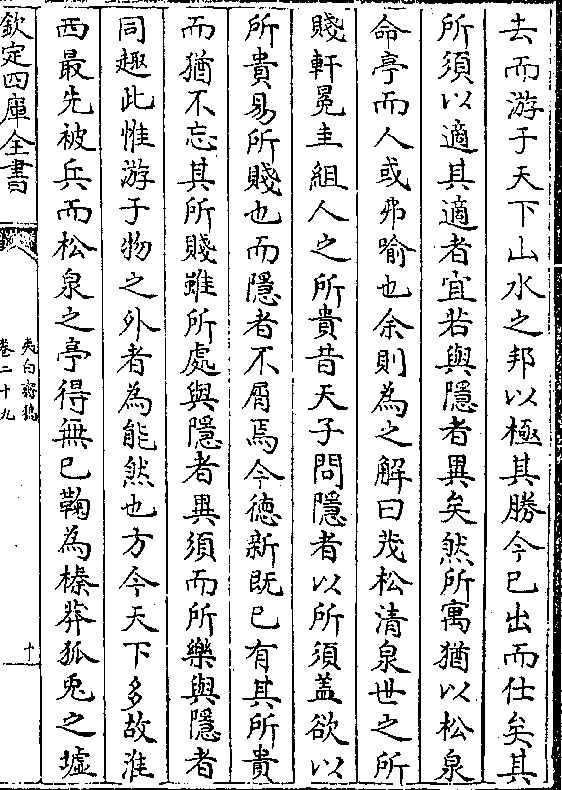 去而游于天下山水之邦以極其勝今已出而仕矣其
所須以適其適者宜若與隱者異矣然所寓猶以松泉
命亭而人或弗喻也余則為之解曰茂松清泉世之所
賤軒冕圭組人之所貴昔天子問隱者以所須盖欲以
所貴易所賤也而隱者不屑焉今徳新既已有其所貴
而猶不忘其所賤雖所處與隱者異須而所樂與隱者
同趣此惟游于物之外者為能然也方今天下多故淮
西最先被兵而松泉之亭得無已鞠為榛莽狐兎之墟
欽定四庫全書
夷白齋稿
卷二十九
十